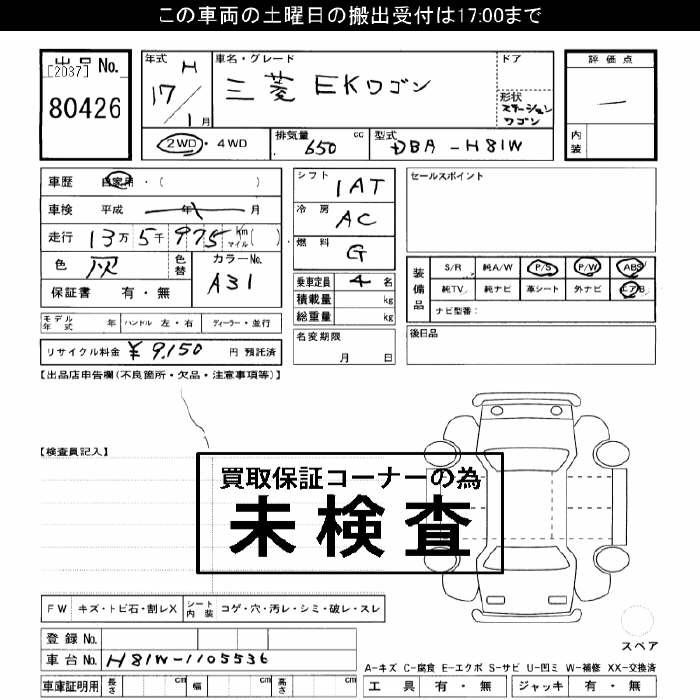 この車両の土曜日の搬出受付は17:00まで
出品 No.
[2037]
80426
年式 H
17/1月
車名・グレード
三菱 EKワゴン
ドア
形状
ステーション
ワゴン
2WD・4WD
排気量 650 cc
型式 DBA-H81W
評価点
内装
車歴 自家用・( )
車検 平成 年 月
走行 13万 5千 975 km マイル( )
色 灰
色替
カラーNo. A31
保証書 有・無
モデル年式 年
ハンドル 左・右
ディーラー・並行
リサイクル料金 ¥9,150 円 預託済
シフト 1AT
冷房 AC
燃料 G
乗車定員 4 名
積載量 kg
総重量 kg
名変期限
月 日
セールスポイント
装備品
S/R 純A/W P/S P/W ABS
純TV 純ナビ 革シート 外ナビ エアB
ナビ型番:
後日品
【出品店申告欄(不良箇所・欠品・注意事項等)】
【検査員記入】
買取保証コーナーの為
未検査
FW キズ・トビ石・割レX
シート内装 コゲ・穴・汚レ・シミ・破レ・スレ
登録No.
車台No. H81W-1105536
車庫証明用 長さ cm 幅 cm 高さ cm
スペア
A-キズ C-腐食 E-エクボ S-サビ U-凹ミ W-補修 XX-交換済
工具 有・無 ジャッキ 有・無